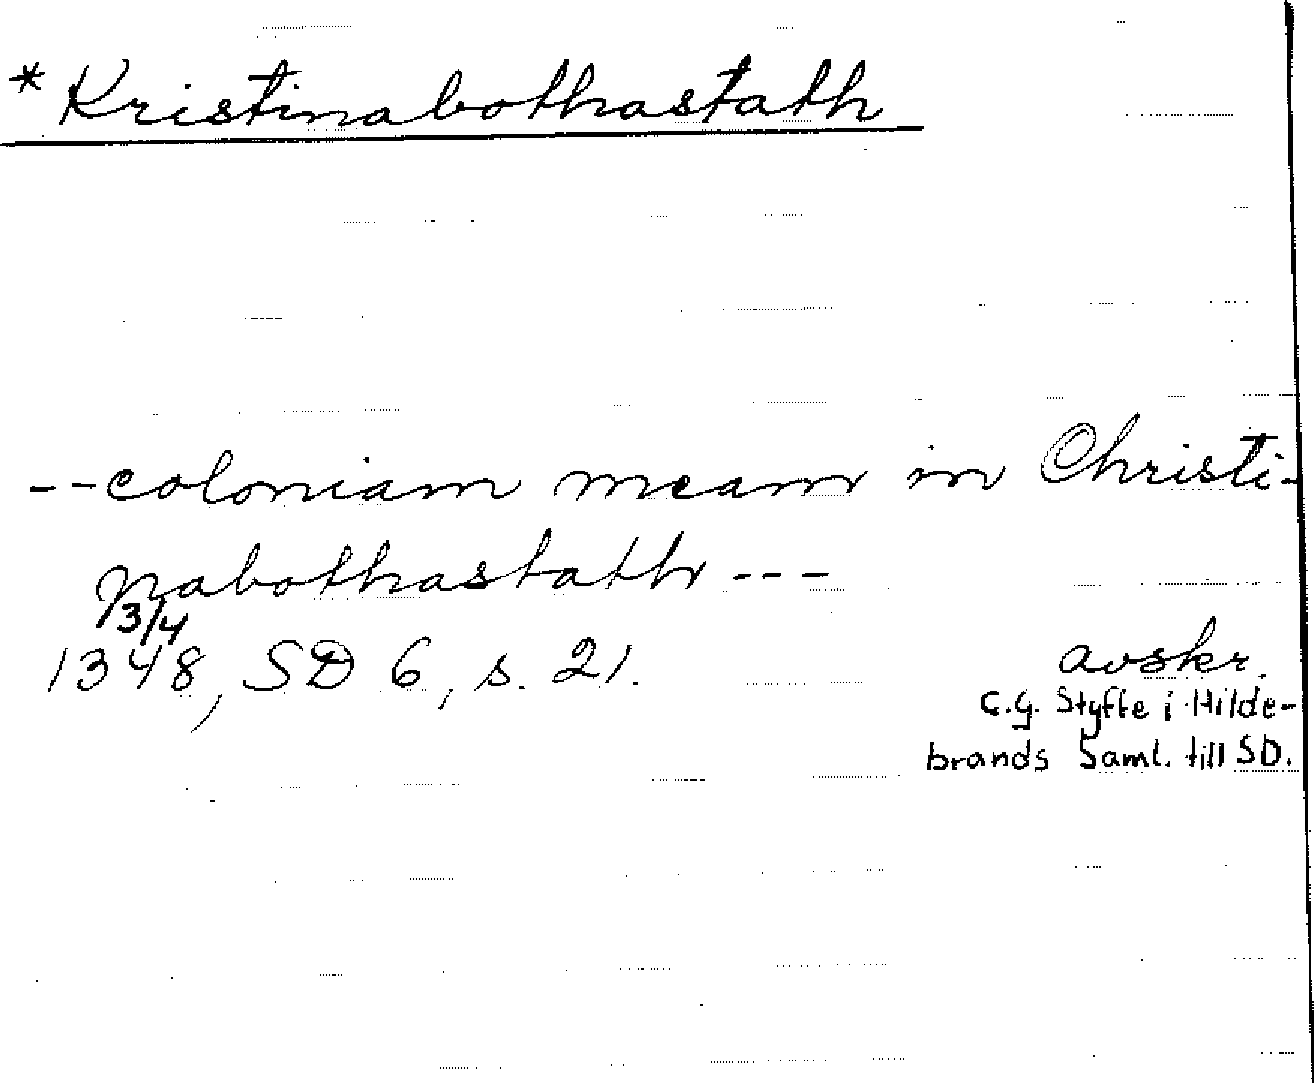 *Kristinabothastath
--coloniam meam in Christi-
nabothastath---
3/4
1348, SD 6, s. 21.
avskr.
C.G. Styffe i Hilde-
brands Saml. till SD.